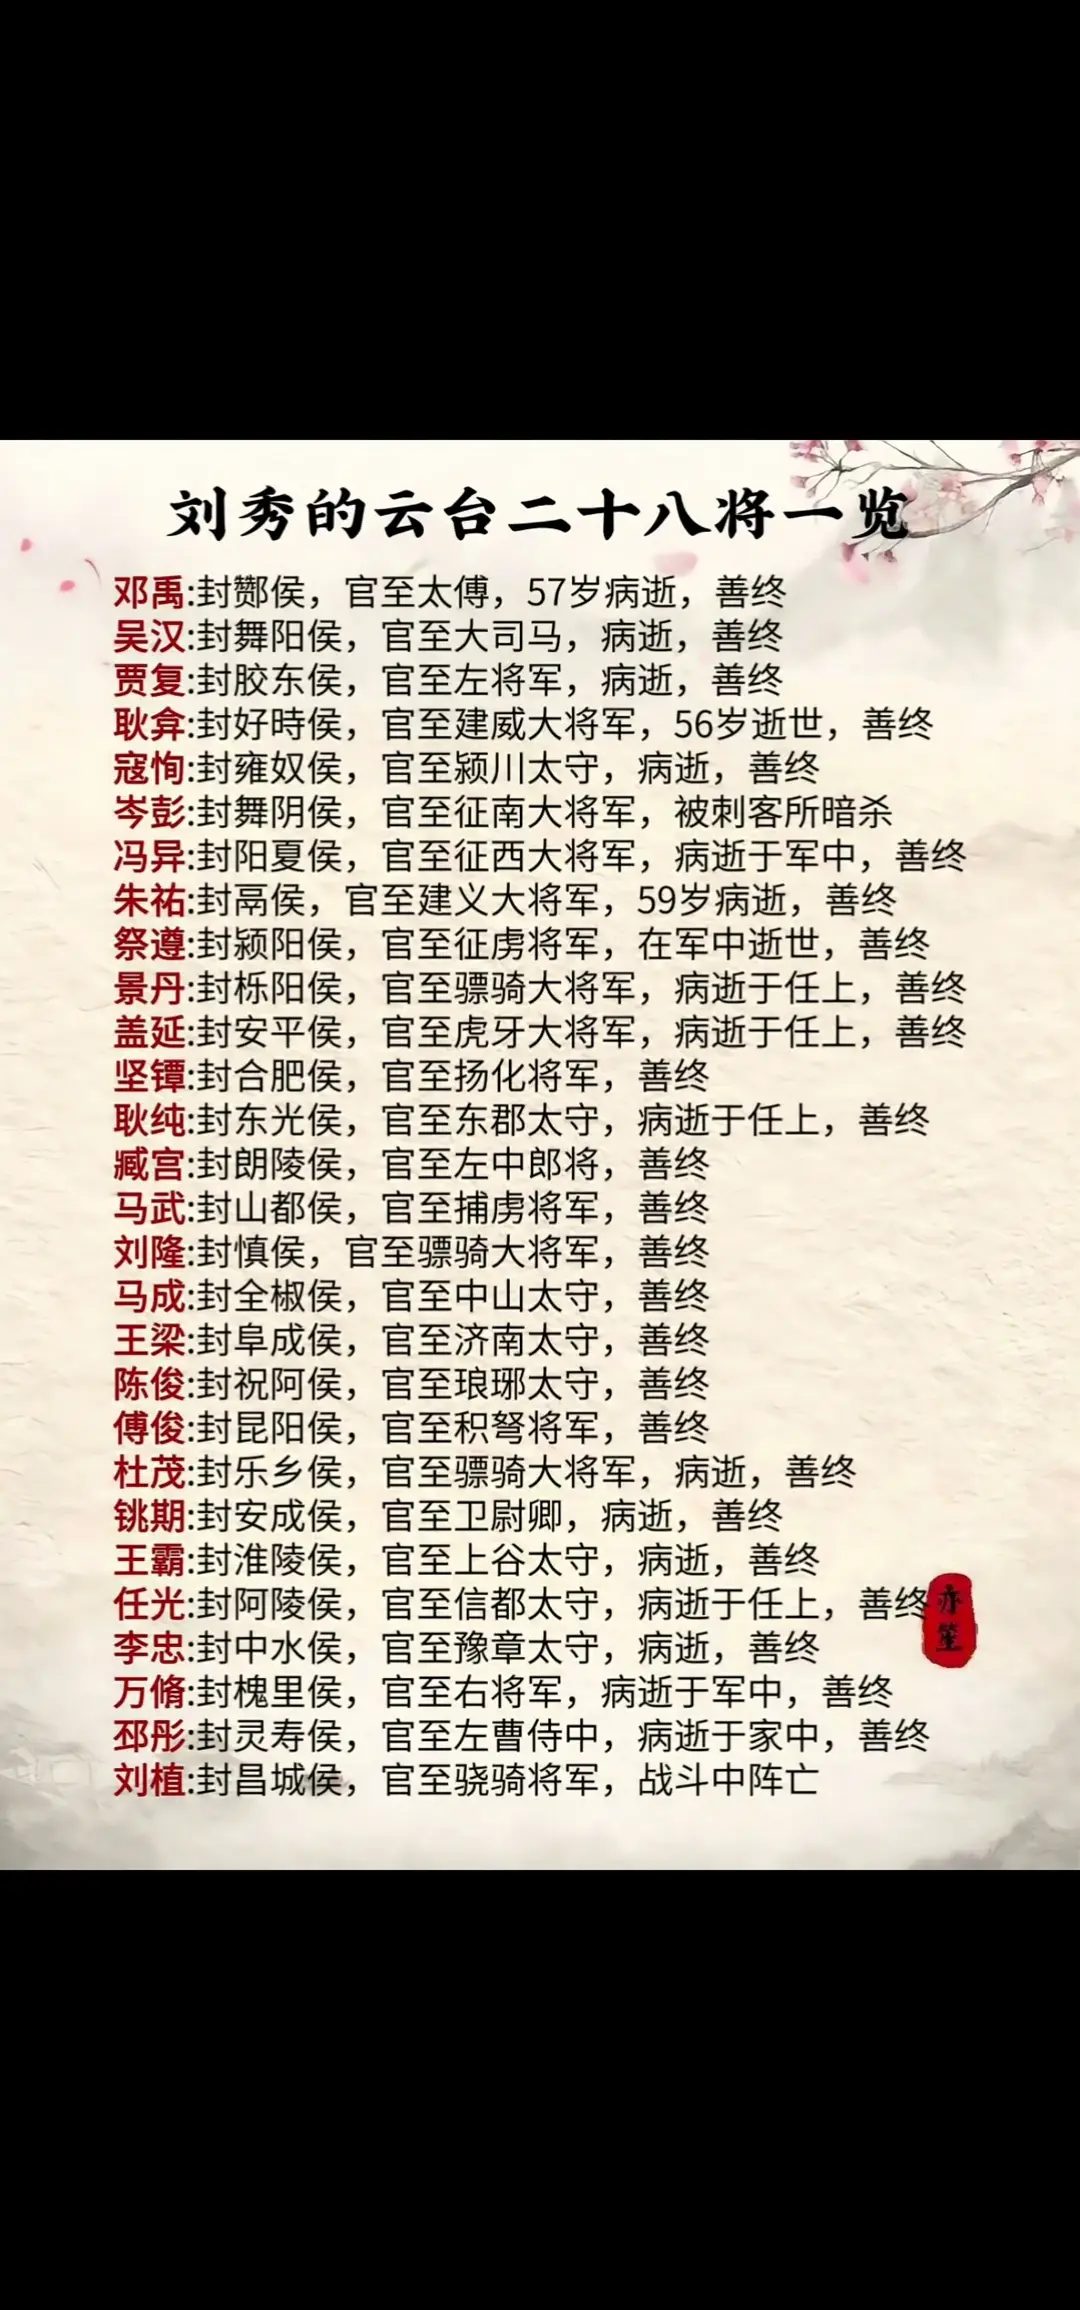 刘秀的云台二十八将一览
邓禹:封酂侯，官至太傅，57岁病逝，善终
吴汉:封舞阳侯，官至大司马，病逝，善终
贾复:封胶东侯，官至左将军，病逝，善终
耿弇:封好時侯，官至建威大将军，56岁逝世，善终
寇恂:封雍奴侯，官至颍川太守，病逝，善终
岑彭:封舞阴侯，官至征南大将军，被刺客所暗杀
冯异:封阳夏侯，官至征西大将军，病逝于军中，善终
朱祐:封鬲侯，官至建义大将军，59岁病逝，善终
祭遵:封颍阳侯，官至征虏将军，在军中逝世，善终
景丹:封栎阳侯，官至骠骑大将军，病逝于任上，善终
盖延:封安平侯，官至虎牙大将军，病逝于任上，善终
坚镡:封合肥侯，官至扬化将军，善终
耿纯:封东光侯，官至东郡太守，病逝于任上，善终
臧宫:封朗陵侯，官至左中郎将，善终
马武:封山都侯，官至捕虏将军，善终
刘隆:封慎侯，官至骠骑大将军，善终
马成:封全椒侯，官至中山太守，善终
王梁:封阜成侯，官至济南太守，善终
陈俊:封祝阿侯，官至琅琊太守，善终
傅俊:封昆阳侯，官至积弩将军，善终
杜茂:封乐乡侯，官至骠骑大将军，病逝，善终
铫期:封安成侯，官至卫尉卿，病逝，善终
王霸:封淮陵侯，官至上谷太守，病逝，善终
任光:封阿陵侯，官至信都太守，病逝于任上，善终
亦笙
李忠:封中水侯，官至豫章太守，病逝，善终
万脩:封槐里侯，官至右将军，病逝于军中，善终
邳彤:封灵寿侯，官至左曹侍中，病逝于家中，善终
刘植:封昌城侯，官至骁骑将军，战斗中阵亡